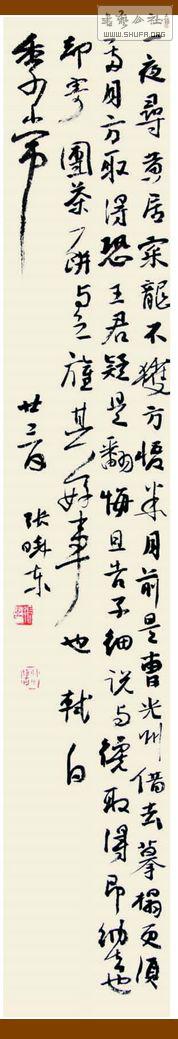 書法公社
WWW.SHUFA.ORG
一夜尋黃居寀龍不獲方悟半月前是曹光州借去摹搨更須
一兩月方取得恐王君疑是翻悔且告子細說與纔取得即納去也
却寄團茶一餅與之旌其好事也 軾白
季常
廿三日 張曉东